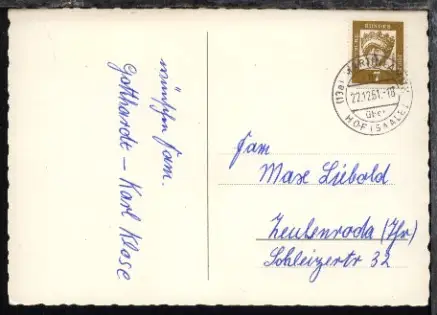 wünschen Fam.
Gotthardt – Karl Klose
22.12.61.-18
über
HOF (SAALE)
Fam
Max Liebold
Zeulenroda (Thr)
Schleizerstr 32